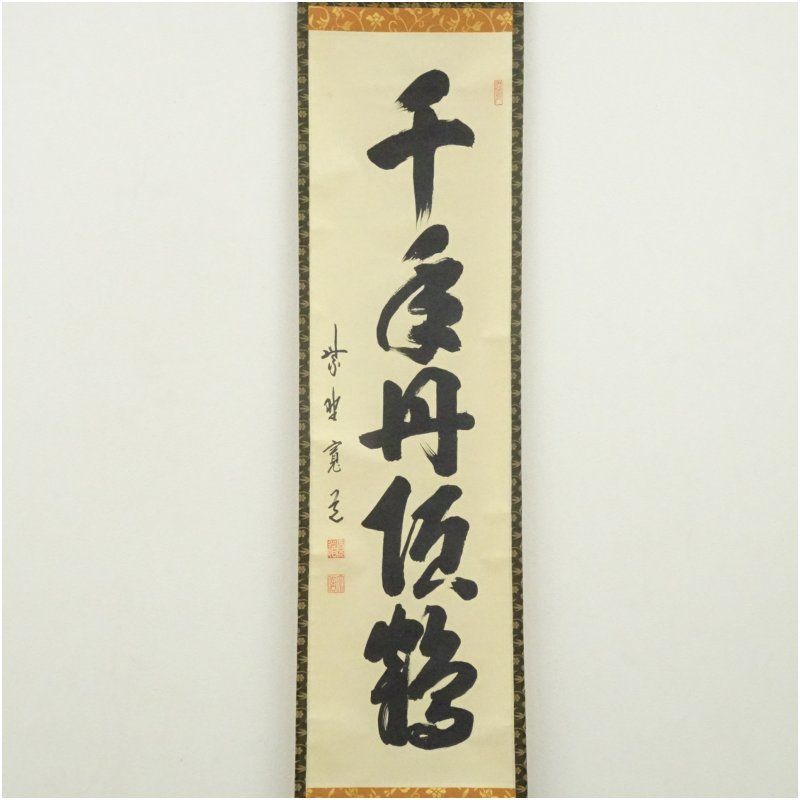 千年丹頂鶴
紫野寛道